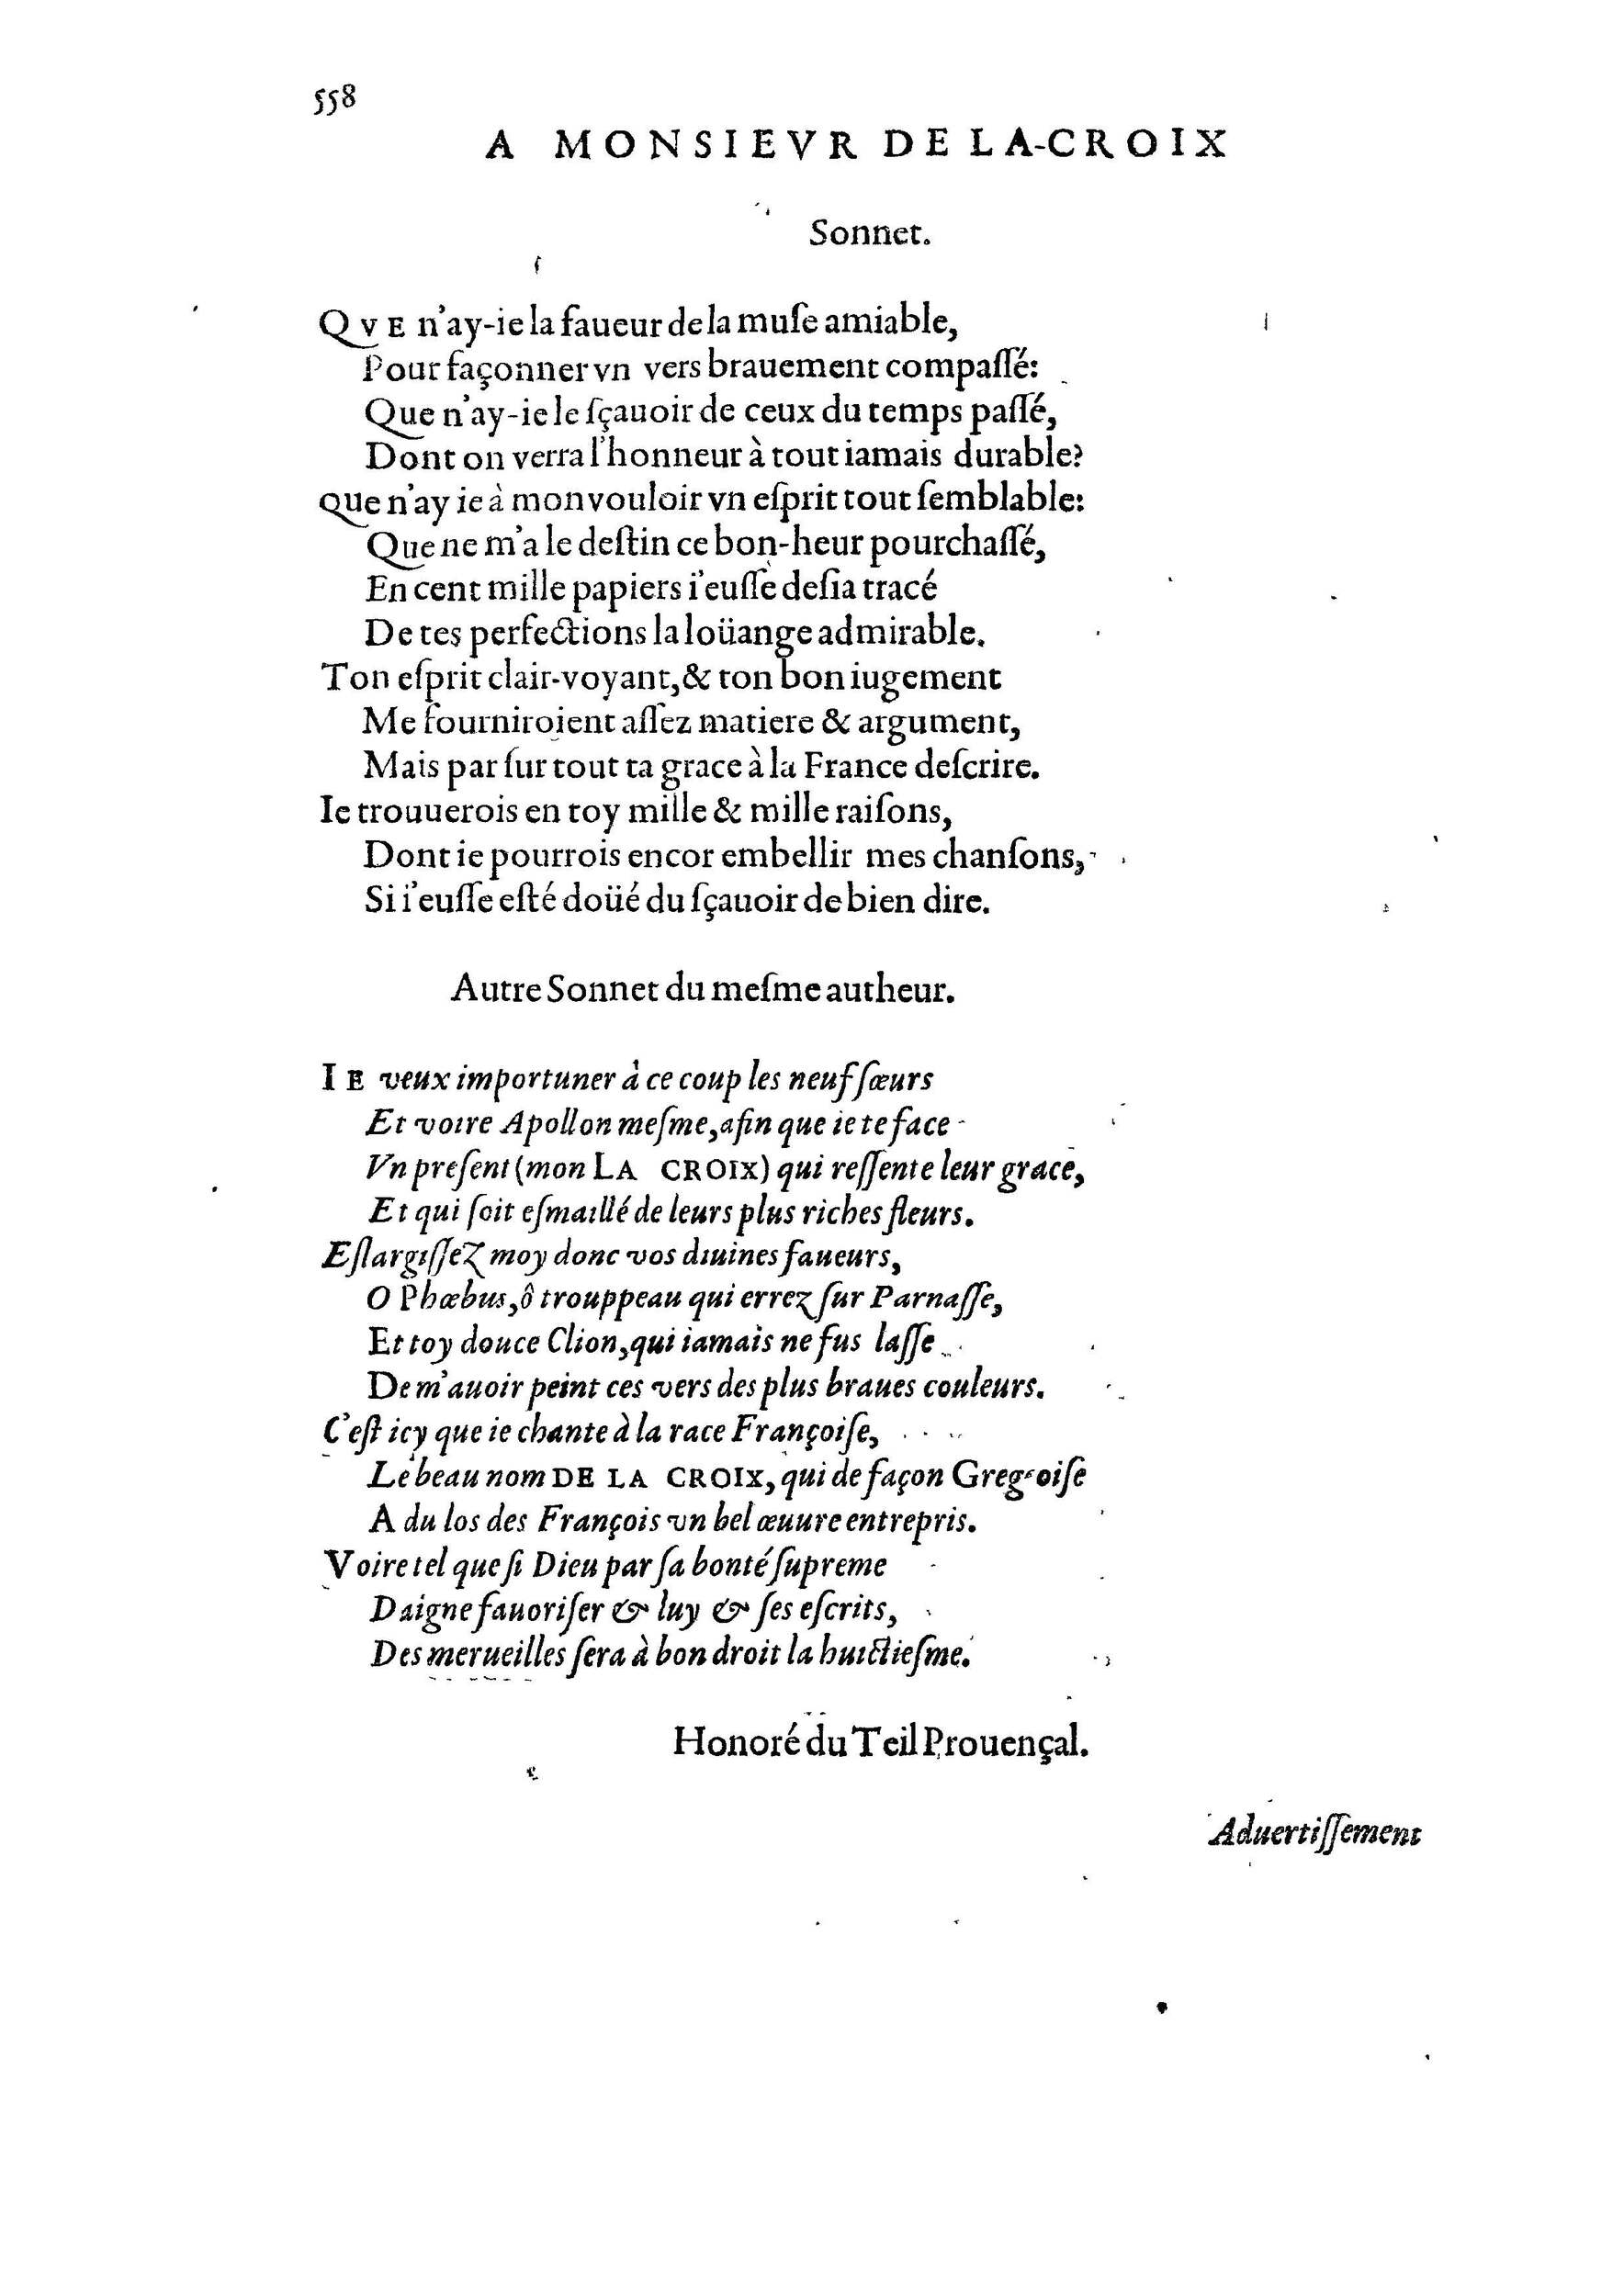 558
A MONSIEVR DE LA-CROIX
Sonnet.
QVE n'ay-ie la faueur de la muſe amiable,
Pour façonner vn vers brauement compaſſé:
Que n'ay-ie le ſçauoir de ceux du temps paſſé,
Dont on verra l'honneur à tout iamais durable?
Que n'ay ie à mon vouloir vn eſprit tout ſemblable:
Que ne m'a le deſtin ce bon-heur pourchaſſé,
En cent mille papiers i'euſſe deſia tracé
De tes perfections la loüange admirable.
Ton eſprit clair-voyant, & ton bon iugement
Me fourniroient aſſez matiere & argument,
Mais par ſur tout ta grace à la France deſcrire.
Ie trouuerois en toy mille & mille raiſons,
Dont ie pourrois encor embellir mes chanſons,
Si i'euſſe eſté doüé du ſçauoir de bien dire.
Autre Sonnet du meſme autheur.
IE veux importuner à ce coup les neuf ſœurs
Et voire Apollon meſme, afin que ie te face
Vn preſent (mon LA CROIX) qui reſſente leur grace,
Et qui ſoit eſmaillé de leurs plus riches fleurs.
Eſlargiſſez moy donc vos diuines faueurs,
O Phœbus, ô trouppeau qui errez ſur Parnaſſe,
Et toy douce Clion, qui iamais ne fus laſſe
De m'auoir peint ces vers des plus braues couleurs.
C'eſt icy que ie chante à la race Françoiſe,
Le beau nom DE LA CROIX, qui de façon Gregeoiſe
A du los des François vn bel œuure entrepris.
Voire tel que ſi Dieu par ſa bonté ſupreme
Daigne fauoriſer & luy & ſes eſcrits,
Des merueilles ſera à bon droit la huictieſme.
Honoré du Teil Prouençal.
Aduertiſſement